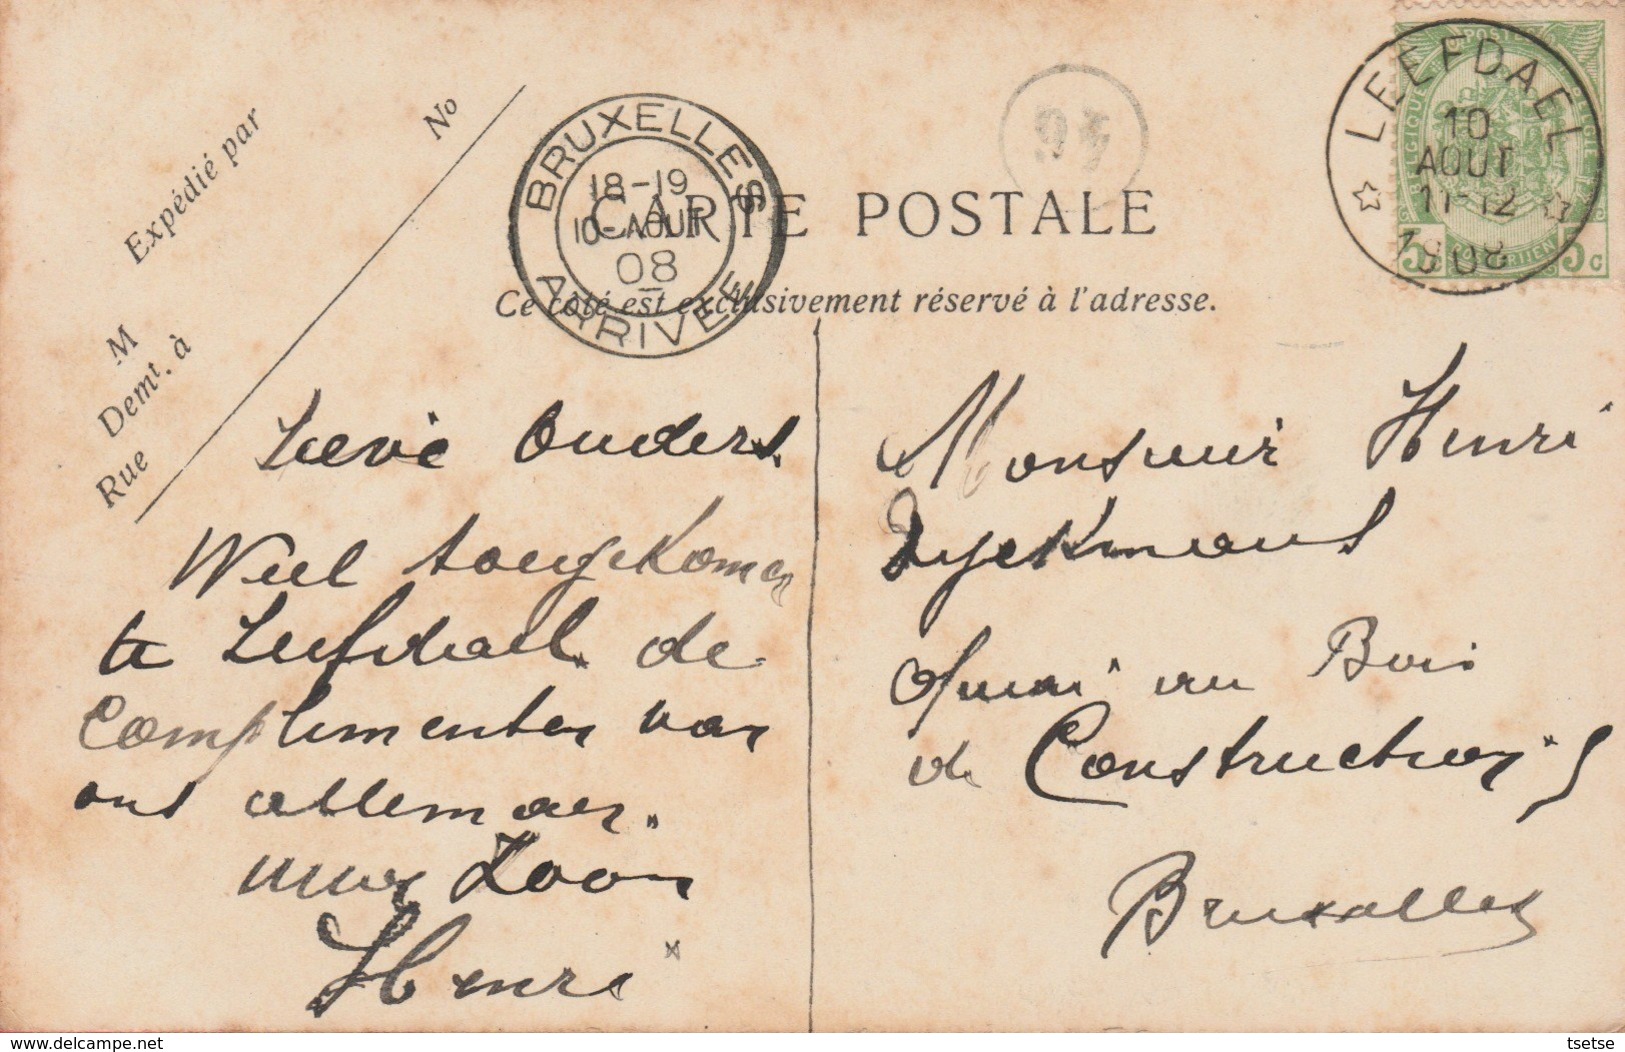 Expédié par
No
M
Demt. à
Rue
BRUXELLES
18-19
10-AOUT
08
ARRIVEE
94
LEEFDAEL
10
AOUT
11-12
1908
POSTES
BELGIQUE
BELGIE
5 5c
CARTE POSTALE
Ce côté est exclusivement réservé à l'adresse.
Lieve Ouders.
Weel toegekomen
te Leefdael de
Complimenten van
ons allemaer.
uwer Zoon
Henri
Monsieur Henri
Dyckmans
Quai au Bois
de Constructions
Bruxelles
delcampe.net
tsetse